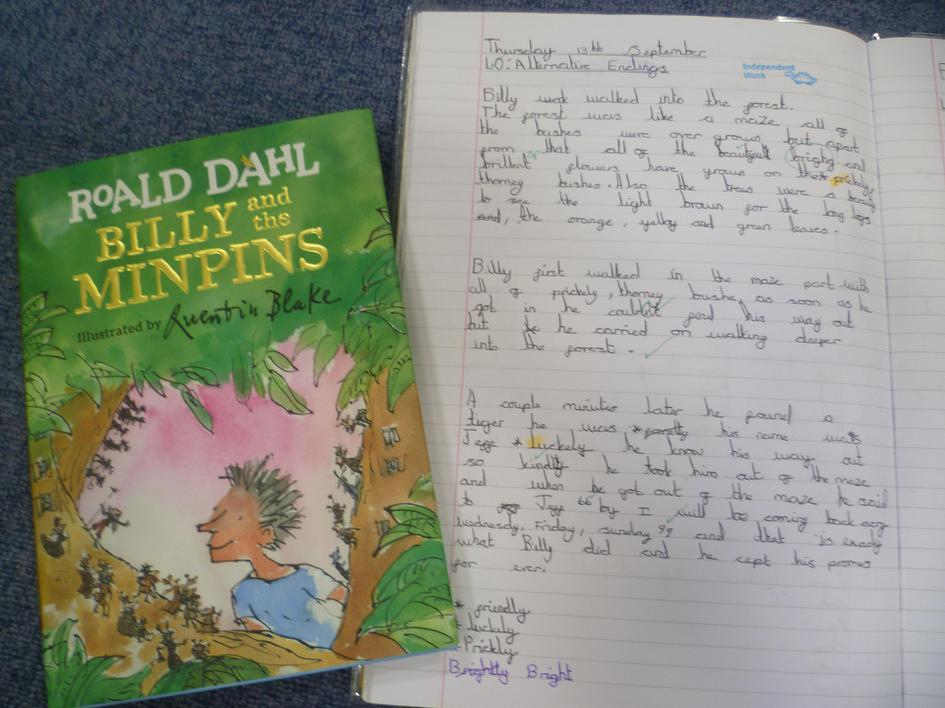 ROALD DAHL
BILLY and
the
MINPINS
Illustrated by Quentin Blake
Thursday 13th September
LO: Alternative Endings
Independent
Work
Billy walked into the forest.
The forest was like a maze all of
the bushes were over grown but apart
from that all of the beautyfull brighy and
brillent flowers have grown on prickely,
thorney bushes. Also the trees were a beauty
to see the light brown for the long logs
and, the orange, yelloy and green leaves.
Billy first walked in the maze part with
all of prickely, thorney bushe, as soon as he
got in he couldn't find his way out
but he carried on walking deeper
into the forest.
A couple minutes later he found a
tiger he was * his name was
Jeff * luckely he know his way out
so kindly he took him out of the maze
and when he got out of the maze he said
to Jeff 66 by I will be coming back evry
wednesday, Friday, sunday 99 and that is exacly
what Billy did and he cept his promes
for ever.
* friendly
* luckily
* Prickly
Brightly Bright